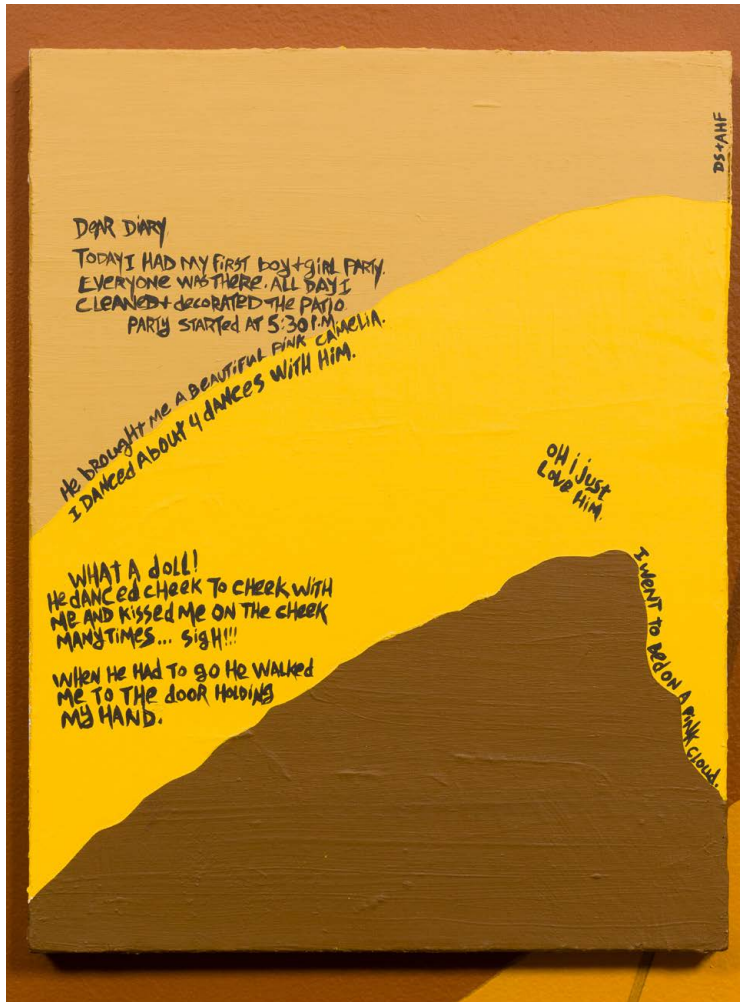 DS+AHF
DEAR DiARY
TODAY I HAD MY FiRST boy+giRL PARTY.
EVERYONE WAS THERE. ALL DAY I
CLEANED+ decORATED THE PATiO.
PARTY STARTEd AT 5:30 P.M.
He bROUgHT ME A BEAUTiFUL PiNK CAMELiA.
I DANCEd AbOUT 4 dANCES WiTH HiM.
OH i jusT
LOVE HiM.
WHAT A dOLL!
He dANCEd CHEEK TO CHEEK WiTH
ME AND KiSSED ME ON THE CHEEK
MANY TiMES... SigH!!!
WHEN HE HAD TO gO HE WALKED
ME TO THE dOOR HOLDiNg
MY HAND.
I WENT TO BED ON A PiNK CLOUd.